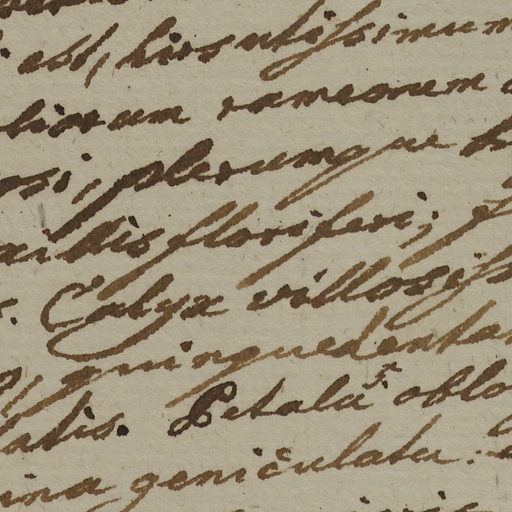 est, hirsutissimum
liorum rameorum
osi, plerumque
axillis floriferi;
Calyx villosiss
quinquedentat
latis. Petala 5 oblo
ina geniculata.